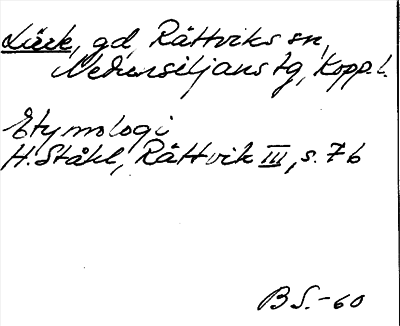 Lück, gd, Rättviks sn,
Nedansiljans tg, Kopp.l.
Etymologi
H. Ståhl, Rättvik III, s. 76
B S.-60